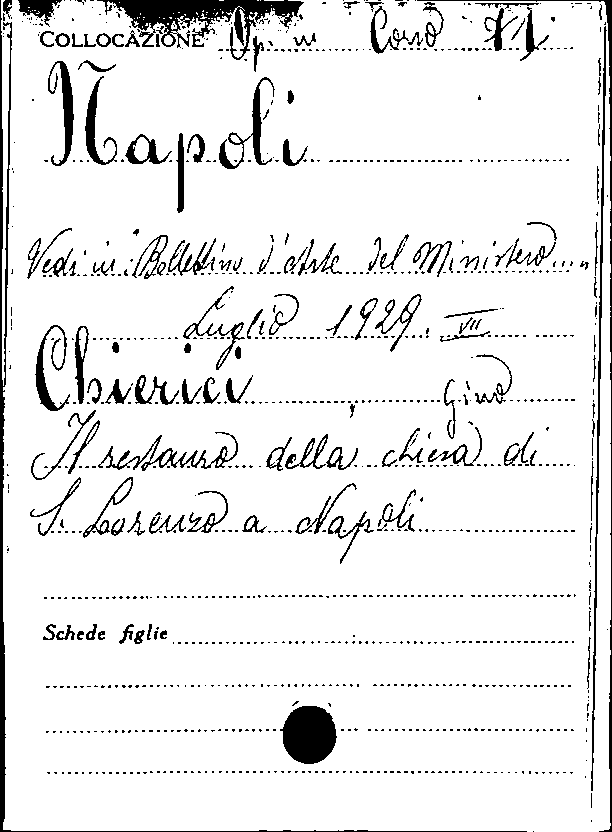 COLLOCAZIONE Op. in Corso 71
Napoli
Vedi in: Bollettino d'Arte del Ministero....
Luglio 1929. VII
Chierici, Gino
Il restauro della chiesa di
S. Lorenzo a Napoli
Schede figlie